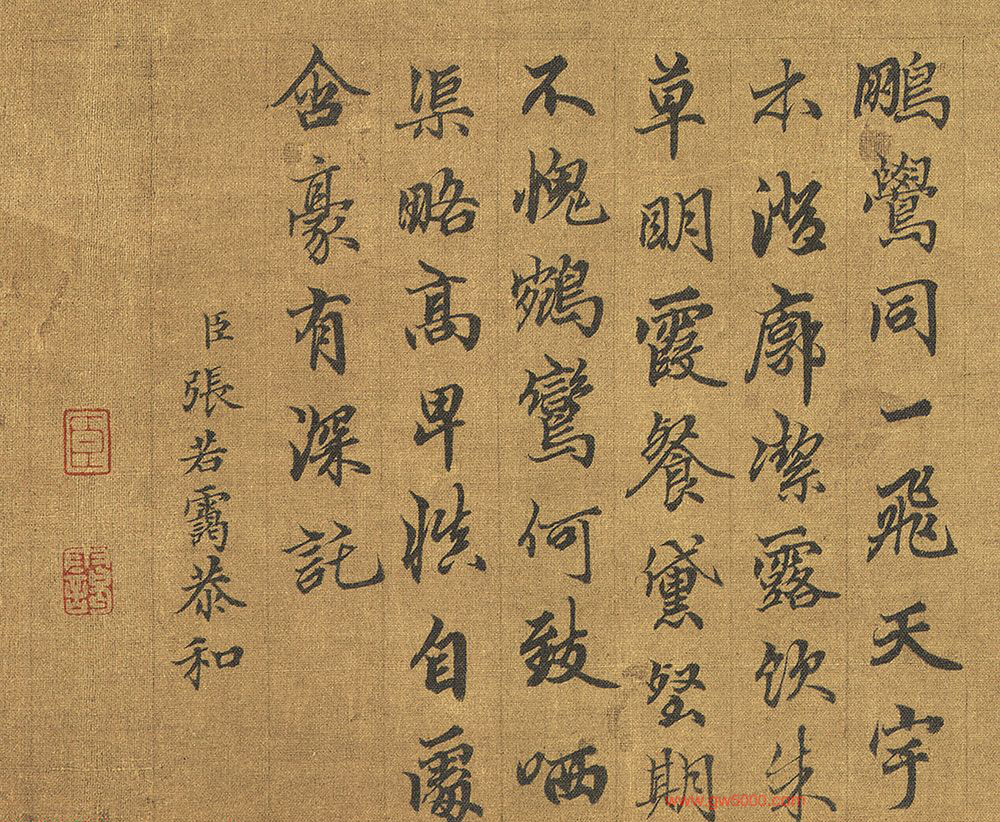 鵬鷽同一飛天宇
本澄廓潔露飲朱
草明霞餐黛壑期
不愧鵷鸞何致哂
渠略高卑慎自處
含豪有深託
臣張若靄恭和
臣
www.gws000.com